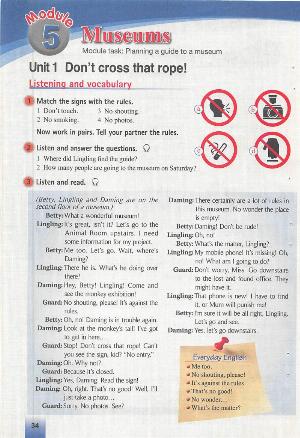 Module
5
Museums
Module task: Planning a guide to a museum
Unit 1 Don't cross that rope!
Listening and vocabulary
1 Match the signs with the rules.
1 Don't touch. 3 No shouting.
2 No smoking. 4 No photos.
Now work in pairs. Tell your partner the rules.
2 Listen and answer the questions.
1 Where did Lingling find the guide?
2 How many people are going to the museum on Saturday?
3 Listen and read.
(Betty, Lingling and Daming are on the
second floor of a museum.)
Betty: What a wonderful museum!
Lingling: It's great, isn't it? Let's go to the
Animal Room upstairs. I need
some information for my project.
Betty: Me too. Let's go. Wait, where's
Daming?
Lingling: There he is. What's he doing over
there?
Daming: Hey, Betty! Lingling! Come and
see the monkey exhibition!
Guard: No shouting, please! It's against the
rules.
Betty: Oh, no! Daming is in trouble again.
Daming: Look at the monkey's tail! I've got
to get in here...
Guard: Stop! Don't cross that rope! Can't
you see the sign, kid? "No entry."
Daming: Oh. Why not?
Guard: Because it's closed.
Lingling: Yes, Daming. Read the sign!
Daming: Oh, right. That's no good! Well, I'll
just take a photo...
Guard: Sorry. No photos. See?
Daming: There certainly are a lot of rules in
this museum. No wonder the place
is empty!
Betty: Daming! Don't be rude!
Lingling: Oh, no!
Betty: What's the matter, Lingling?
Lingling: My mobile phone! It's missing! Oh,
no! What am I going to do?
Guard: Don't worry, Miss. Go downstairs
to the lost and found office. They
might have it.
Lingling: That phone is new! I have to find
it, or Mum will punish me!
Betty: I'm sure it will be all right, Lingling.
Let's go and see.
Daming: Yes, let's go downstairs.
Everyday English
Me too.
No shouting, please!
It's against the rules.
That's no good!
No wonder...
What's the matter?
34